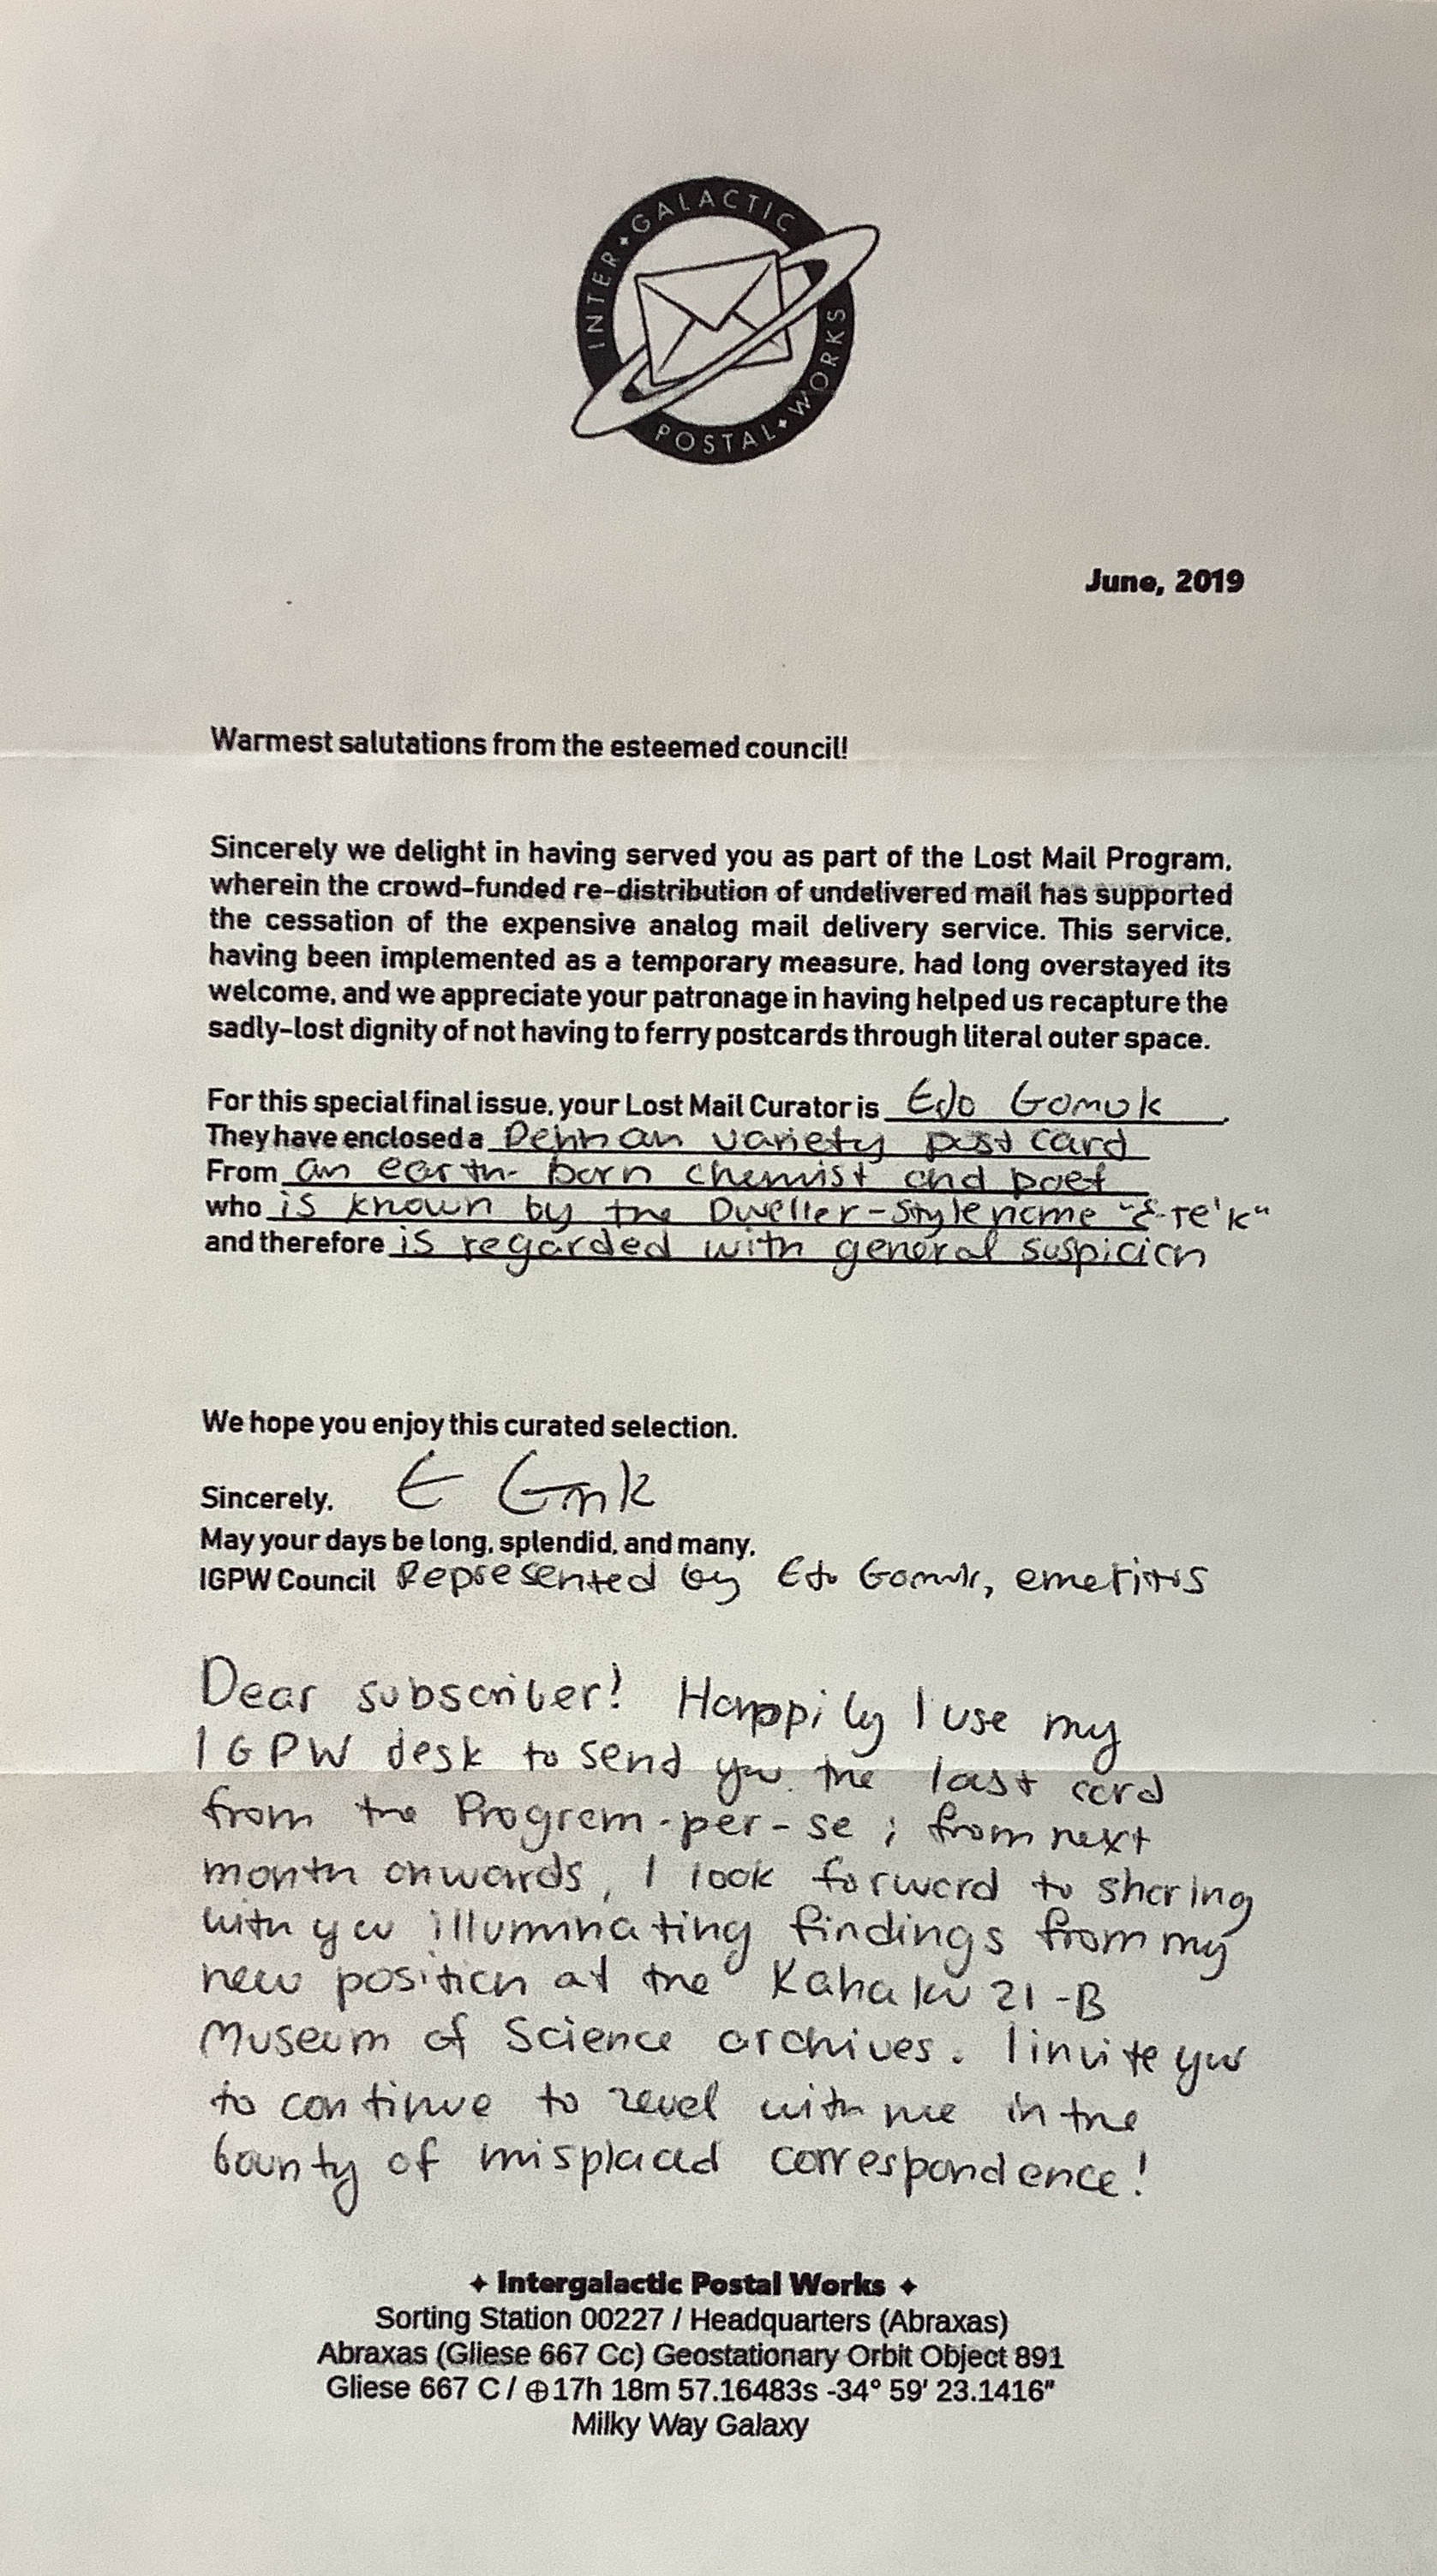 INTER ✦ GALACTIC
POSTAL ✦ WORKS
June, 2019
Warmest salutations from the esteemed council!
Sincerely we delight in having served you as part of the Lost Mail Program,
wherein the crowd-funded re-distribution of undelivered mail has supported
the cessation of the expensive analog mail delivery service. This service,
having been implemented as a temporary measure, had long overstayed its
welcome, and we appreciate your patronage in having helped us recapture the
sadly-lost dignity of not having to ferry postcards through literal outer space.
For this special final issue, your Lost Mail Curator is Edo Gomuk.
They have enclosed a variety post card
From an earth-born chemist and poet
who is known by the Dweller-style name "Ɛ-re'k"
and therefore is regarded with general suspicion
We hope you enjoy this curated selection.
Sincerely, E Gmk
May your days be long, splendid, and many,
IGPW Council Represented by Edo Gomuk, emeritus
Dear subscriber! Happily I use my
IGPW desk to send you the last card
from the Program-per-se; from next
month onwards, I look forward to sharing
with you illuminating findings from my
new position at the Kahaku 21-B
Museum of Science archives. I invite you
to continue to revel with me in the
bounty of misplaced correspondence!
✦ Intergalactic Postal Works ✦
Sorting Station 00227 / Headquarters (Abraxas)
Abraxas (Gliese 667 Cc) Geostationary Orbit Object 891
Gliese 667 C / ⊕17h 18m 57.16483s -34° 59′ 23.1416″
Milky Way Galaxy